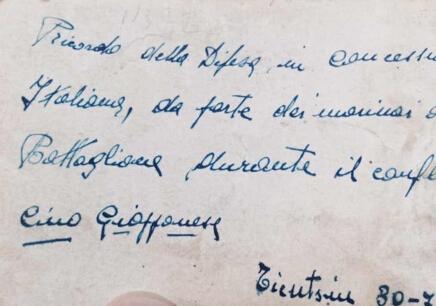 Ricordo della Difesa in concess
Italiana, da parte dei marinai d
Battaglione durante il confl
Cino Giapponese
Tientsin 30-